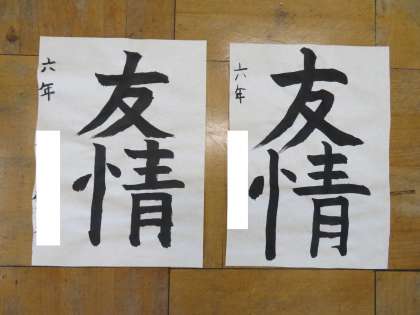 友情
六年
友情
六年